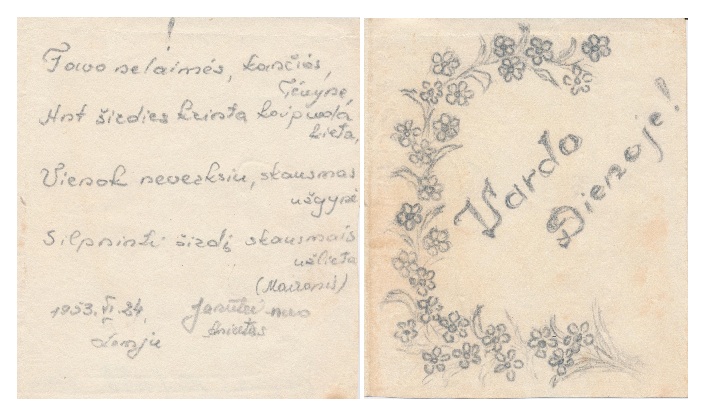 Tavo nelaimės, kančios,
Tėvynę,
Ant širdies krinta kaip uola
kieta,
Vienok neverksiu, skausmas
užgynė
Silpninti širdį skausmais
užlieta
(Maironis)
1953. VI. 24.
Janutei nuo
Vardo
Dienoje!